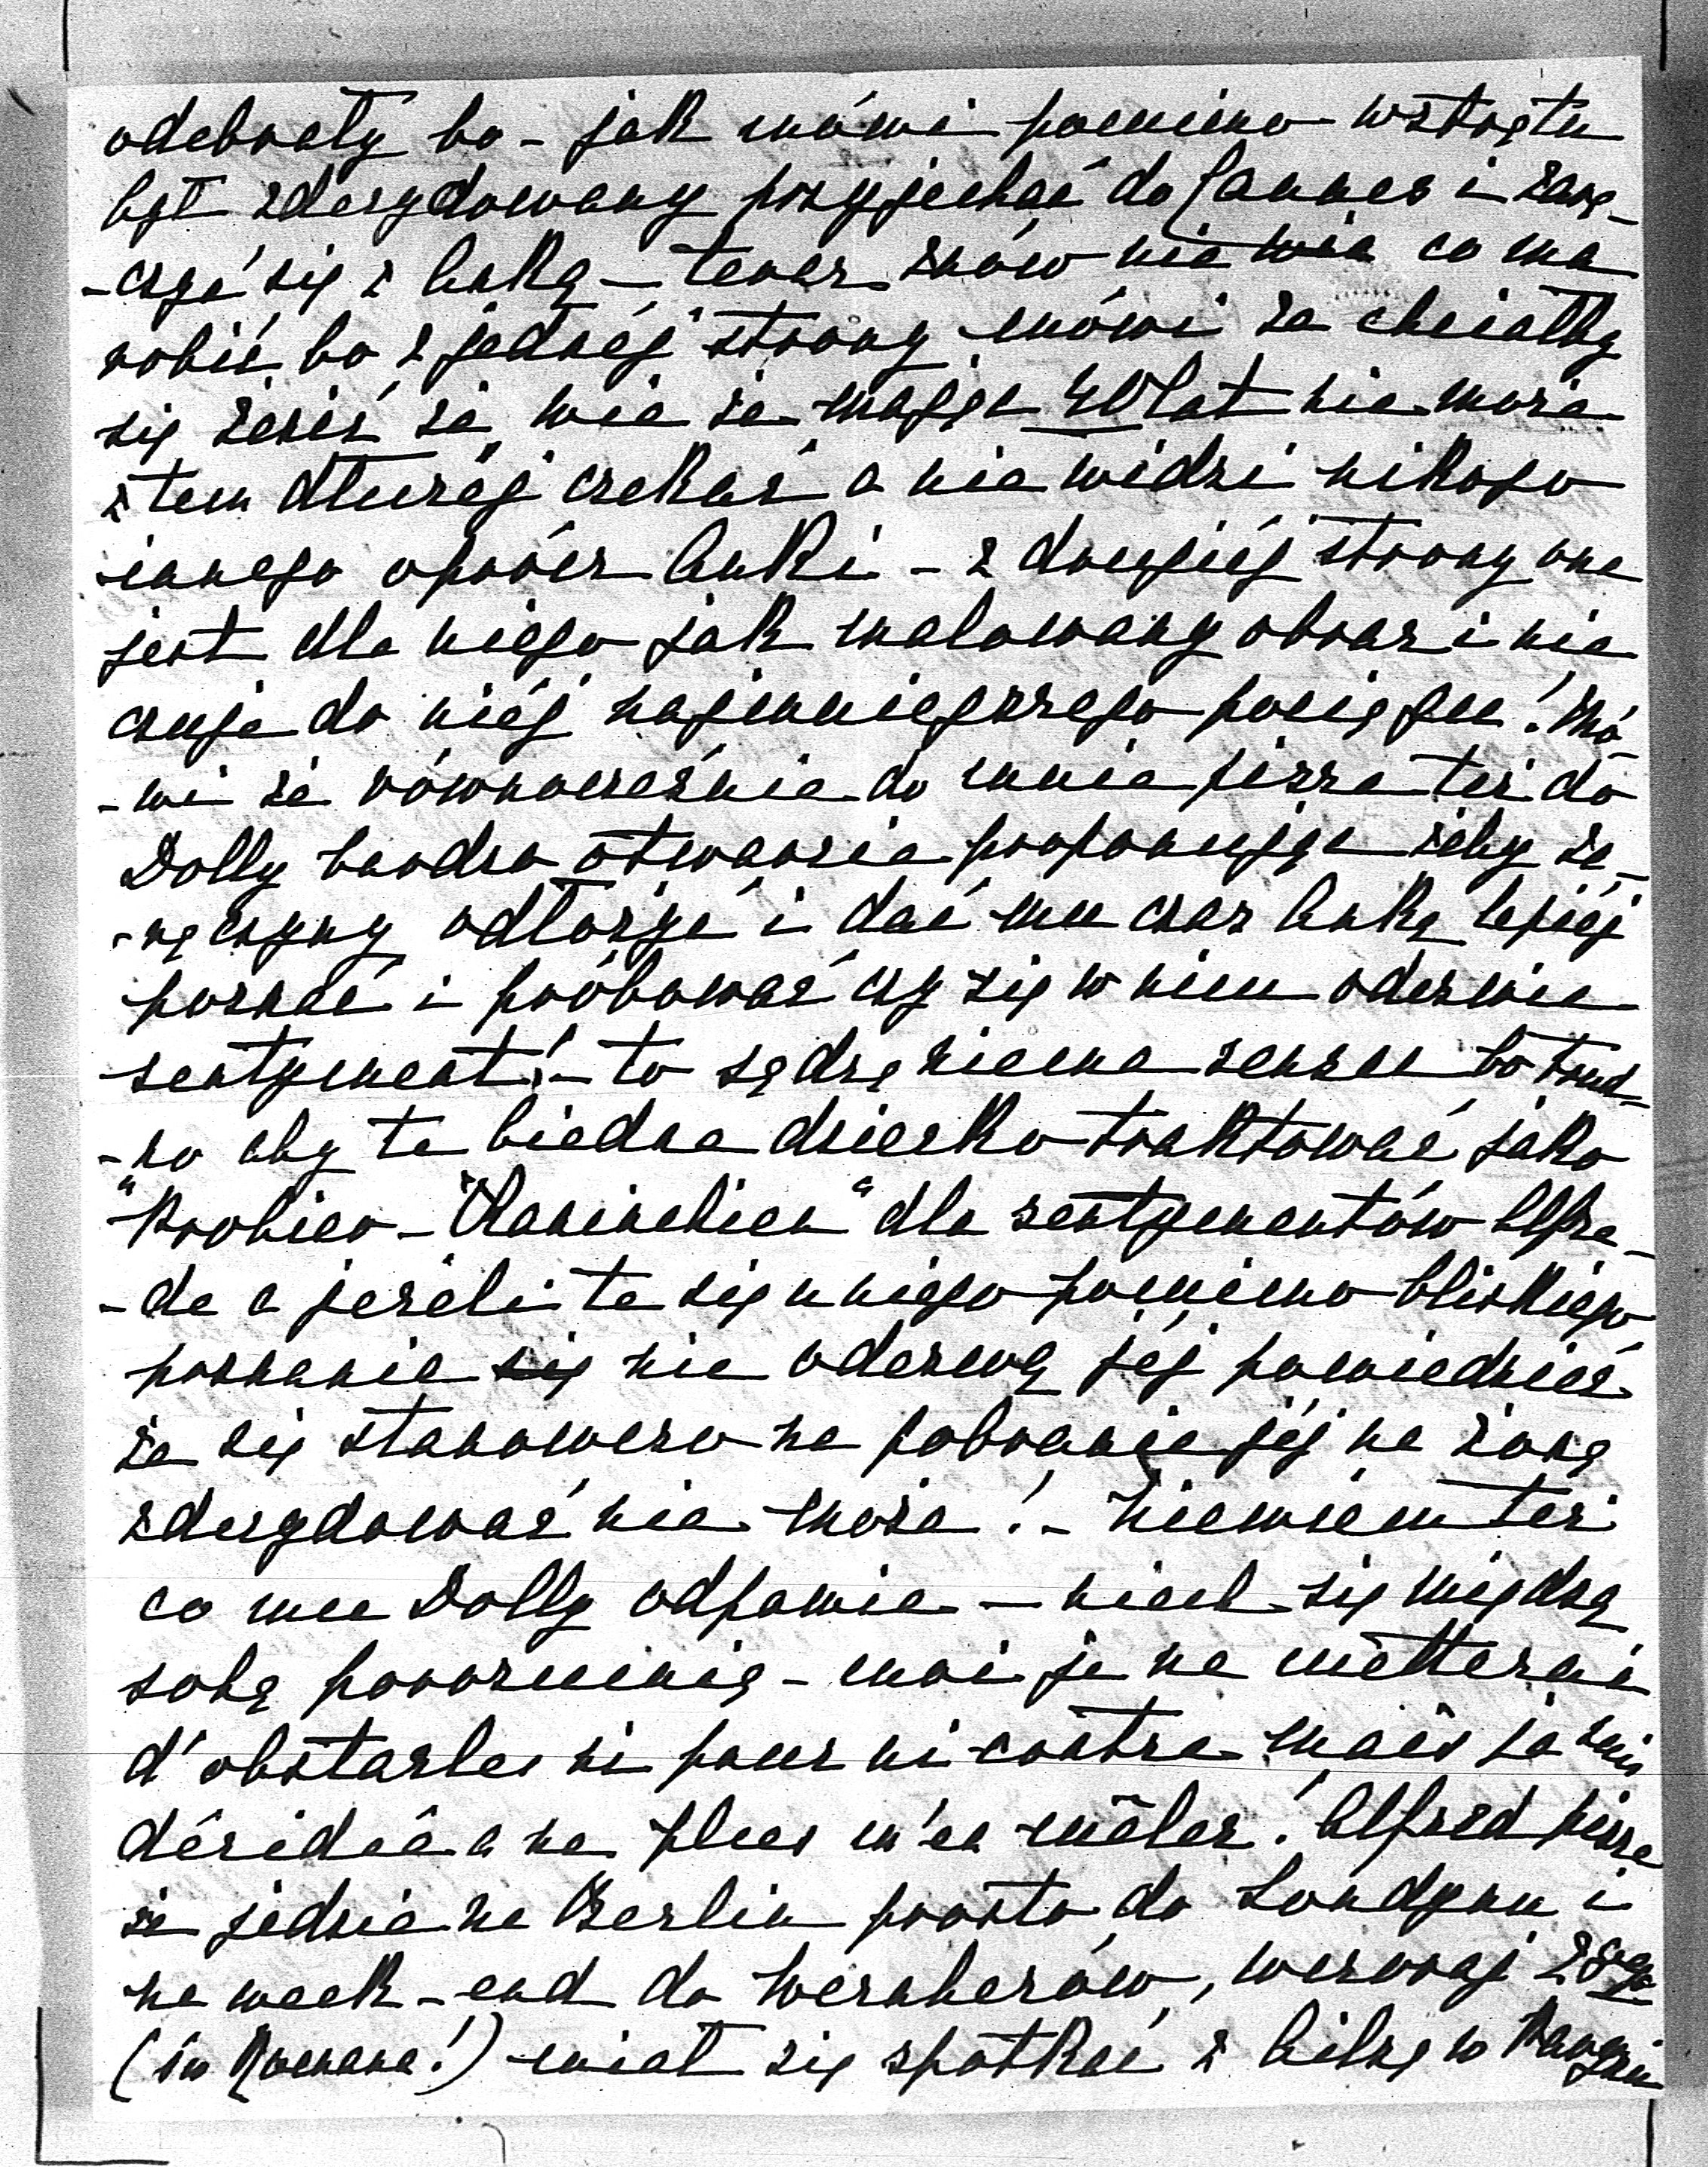 odebrały bo - jak mówi pomimo wstrętu
był zdecydowany przyjechać do Cannes i zarę-
-czyć się z Anką - teraz znów nie wie co ma
robić, bo z jednéj strony mówi że chciałby
się żenić, że wie że mając 40 lat nie może
z tem dłużéj czekać a nie widzi nikogo
innego oprócz Anki - z drugiéj strony ona
jest dla niego jak malowany obraz i nie
czuje do niéj najmniejszego pociągu! Mó-
-wi że równocześnie do mnie pisze też do
Dolly bardzo otwarcie proponując żeby za-
-ręczyny odłożyć i dać mu czas Ankę lepiéj
poznać i próbować czy się w nim odezwie
sentyment! - to sądzę niema sensu bo trud-
-no aby te biedne dziecko traktować jako
"Probier-Kaninchen" dla sentymentów Alfre-
-da a jeżeli te się u niego pomimo bliskiego
poznania się nie odezwą jéj powiedzieć
że się stanowczo na pobranie jéj na żonę
zdecydować nie może! - Niewiem też
co mu Dolly odpowie - niech się między
sobą porozumią - moi je ne mètterai
d'obstacles ni pour ni contre mais je suis
décidée a ne plus m'en mêler! Alfred pisze
że jedzie na Berlin prosto do Londynu i
na week-end do Wernherów, wczoraj 28go
(św Romana!) miał się spotkać z Ailsą w Paryżu